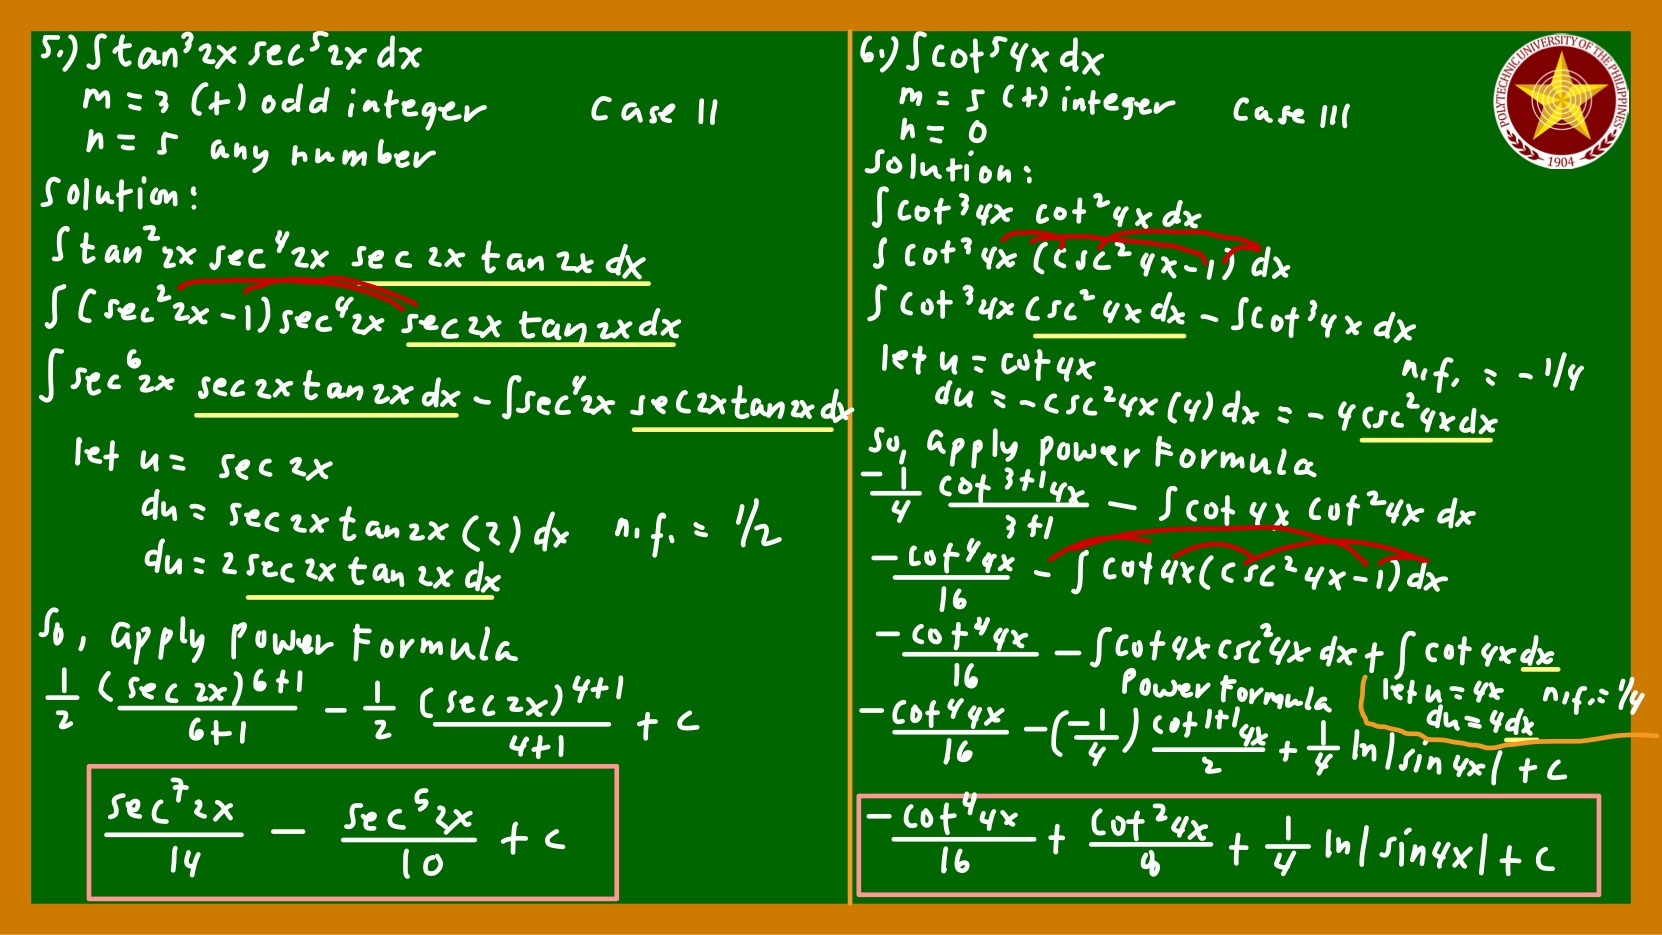 5.) ∫tan³2x sec⁵2x dx
m = 3 (+) odd integer Case II
n = 5 any number
Solution:
∫tan²2x sec⁴2x sec 2x tan 2x dx
∫(sec²2x - 1) sec⁴2x sec 2x tan 2x dx
∫sec⁶2x sec 2x tan 2x dx - ∫sec⁴2x sec 2x tan 2x dx
let u = sec 2x
du = sec 2x tan 2x (2) dx n.f. = 1/2
du = 2 sec 2x tan 2x dx
So, apply Power Formula
1/2 (sec 2x)⁶⁺¹/6+1 - 1/2 (sec 2x)⁴⁺¹/4+1 + C
sec⁷2x/14 - sec⁵2x/10 + C
6.) ∫cot⁵4x dx
m = 5 (+) integer Case III
n = 0
Solution:
∫cot³4x cot²4x dx
∫cot³4x (csc²4x - 1) dx
∫cot³4x csc²4x dx - ∫cot³4x dx
let u = cot 4x n.f. = -1/4
du = -csc²4x (4) dx = -4 csc²4x dx
So, apply Power Formula
-1/4 cot³⁺¹4x/3+1 - ∫cot 4x cot²4x dx
-cot⁴4x/16 - ∫cot 4x (csc²4x - 1) dx
-cot⁴4x/16 - ∫cot 4x csc²4x dx + ∫cot 4x dx
Power Formula let u = 4x n.f. = 1/4
du = 4dx
-cot⁴4x/16 - (-1/4) cot¹⁺¹4x/2 + 1/4 ln|sin 4x| + C
-cot⁴4x/16 + cot²4x/8 + 1/4 ln|sin 4x| + C
POLYTECHNIC UNIVERSITY OF THE PHILIPPINES
1904